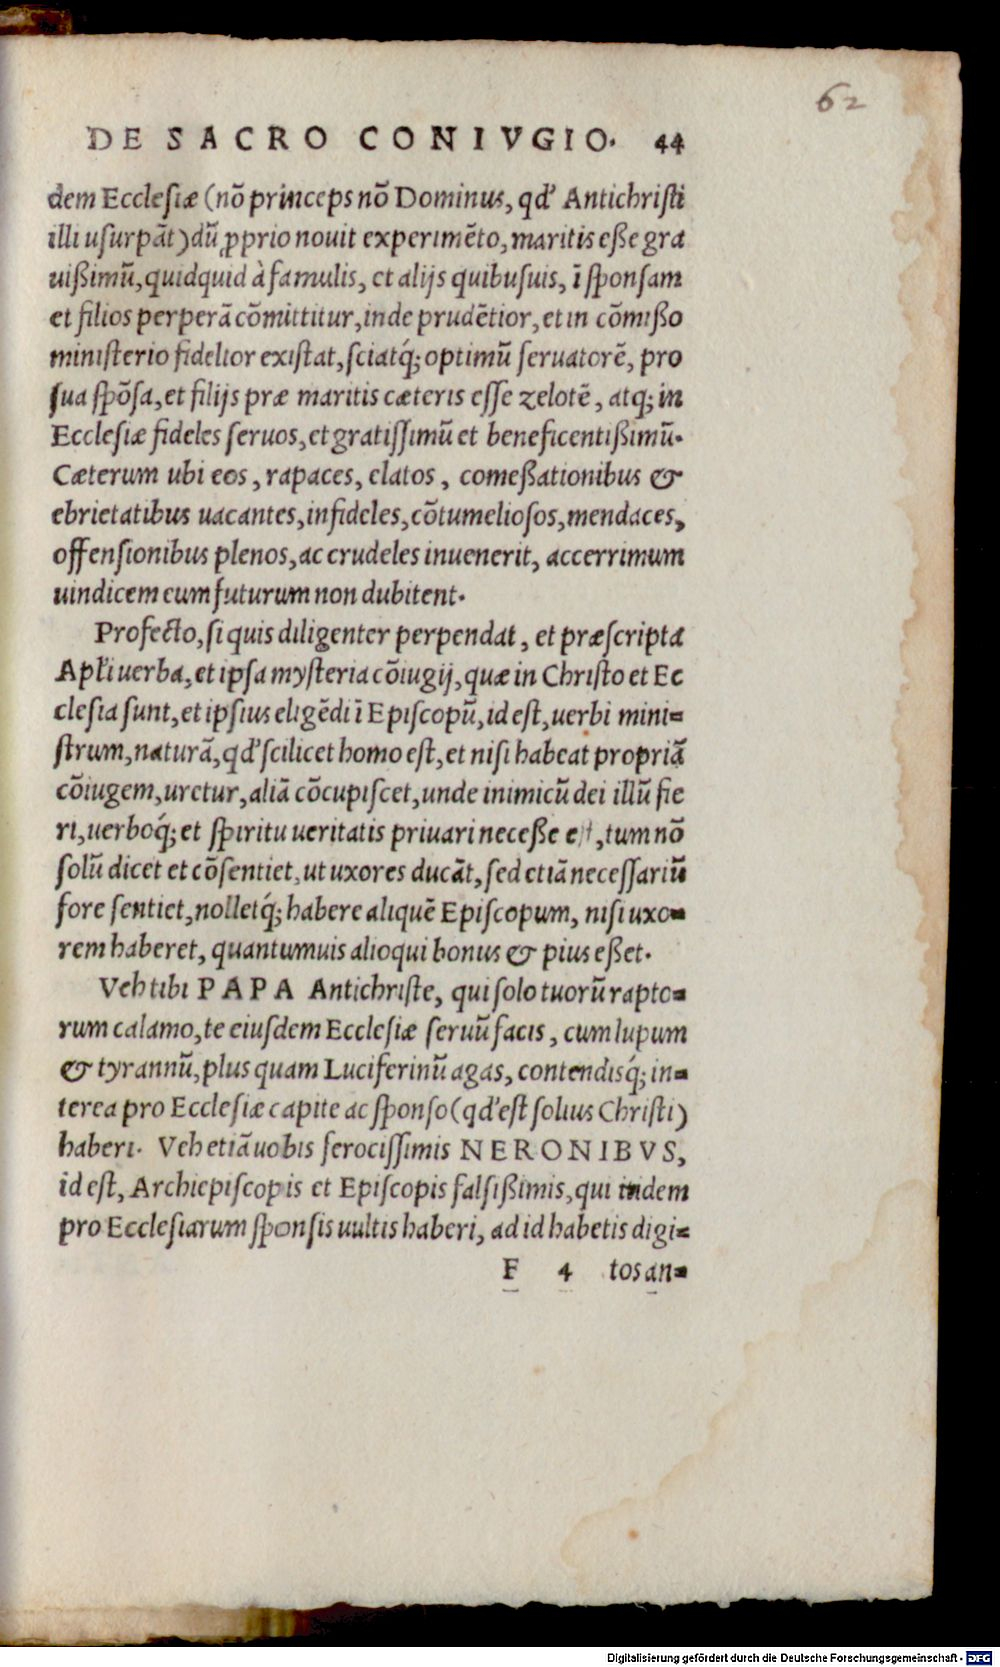 62
DE SACRO CONIVGIO. 44
dem Ecclesiæ (nõ princeps nõ Dominus, qd' Antichristi
illi usurpãt) dũ ꝓprio nouit experimẽto, maritis eße gra
uißimũ, quidquid à famulis, et alijs quibusuis, ĩ sponsam
et filios perperã cõmittitur, inde prudẽtior, et in cõmißo
ministerio fidelior existat, sciatq́; optimũ seruatorẽ, pro
sua spõsa, et filijs præ maritis cæteris esse zelotẽ, atq; in
Ecclesiæ fideles seruos, et gratissimũ et beneficentißimũ.
Cæterum ubi eos, rapaces, elatos, comeßationibus &
ebrietatibus uacantes, infideles, cõtumeliosos, mendaces,
offensionibus plenos, ac crudeles inuenerit, accerrimum
uindicem eum futurum non dubitent.
Profecto, si quis diligenter perpendat, et præscripta
Apľi uerba, et ipsa mysteria cõiugij, quæ in Christo et Ec
clesia sunt, et ipsius eligẽdi ĩ Episcopũ, id est, uerbi mini=
strum, naturã, qd' scilicet homo est, et nisi habeat propriã
cõiugem, uretur, aliã cõcupiscet, unde inimicũ dei illũ fie
ri, uerboq́; et spiritu ueritatis priuari neceße est, tum nõ
solũ dicet et cõsentiet, ut uxores ducãt, sed etiã necessariũ
fore sentiet, nolletq́; habere aliquẽ Episcopum, nisi uxo=
rem haberet, quantumuis alioqui bonus & pius eßet.
Veh tibi PAPA Antichriste, qui solo tuorũ rapto=
rum calamo, te eiusdem Ecclesiæ seruũ facis, cum lupum
& tyrannũ, plus quam Luciferinũ agas, contendisq́; in=
terea pro Ecclesiæ capite ac sponso (qd' est solius Christi)
haberi. Veh etiã uobis ferocissimis NERONIBVS,
id est, Archiepiscopis et Episcopis falsißimis, qui itidem
pro Ecclesiarum sponsis uultis haberi, ad id habetis digi=
F 4 tos an=
Digitalisierung gefördert durch die Deutsche Forschungsgemeinschaft - DFG